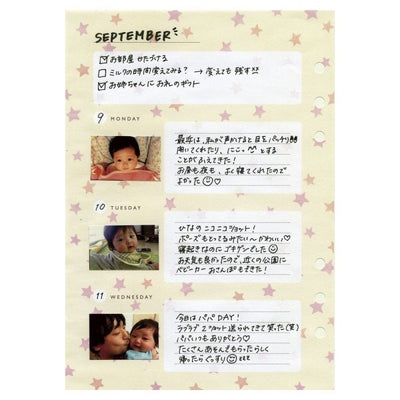 SEPTEMBER
☑お部屋 かたづける
□ミルクの時間変えてみる? → 変えても 残す××
☑お姉ちゃんに お礼のギフト
9 MONDAY
最近は、私が声かけすると 目をパッチリ開
開いてくれたり、にこっ^^とする
ことがふえてきた!
お昼も夜も、よく寝てくれたので
よかった☺♡
10 TUESDAY
ひなの ニコニコショット!
ポーズもとってるみたい〜かわいい♡
寝起きなのに ゴキゲンでした☺
お天気も良かったので、近くの公園に
ベビーカー おさんぽもできた!
11 WEDNESDAY
今日は パパ DAY!
ラブラブ2ショット送られてきて笑った(笑)
パパいつもありがとう♡
たくさん あそんでもらったらしく
帰ったらぐっすり☺zzz